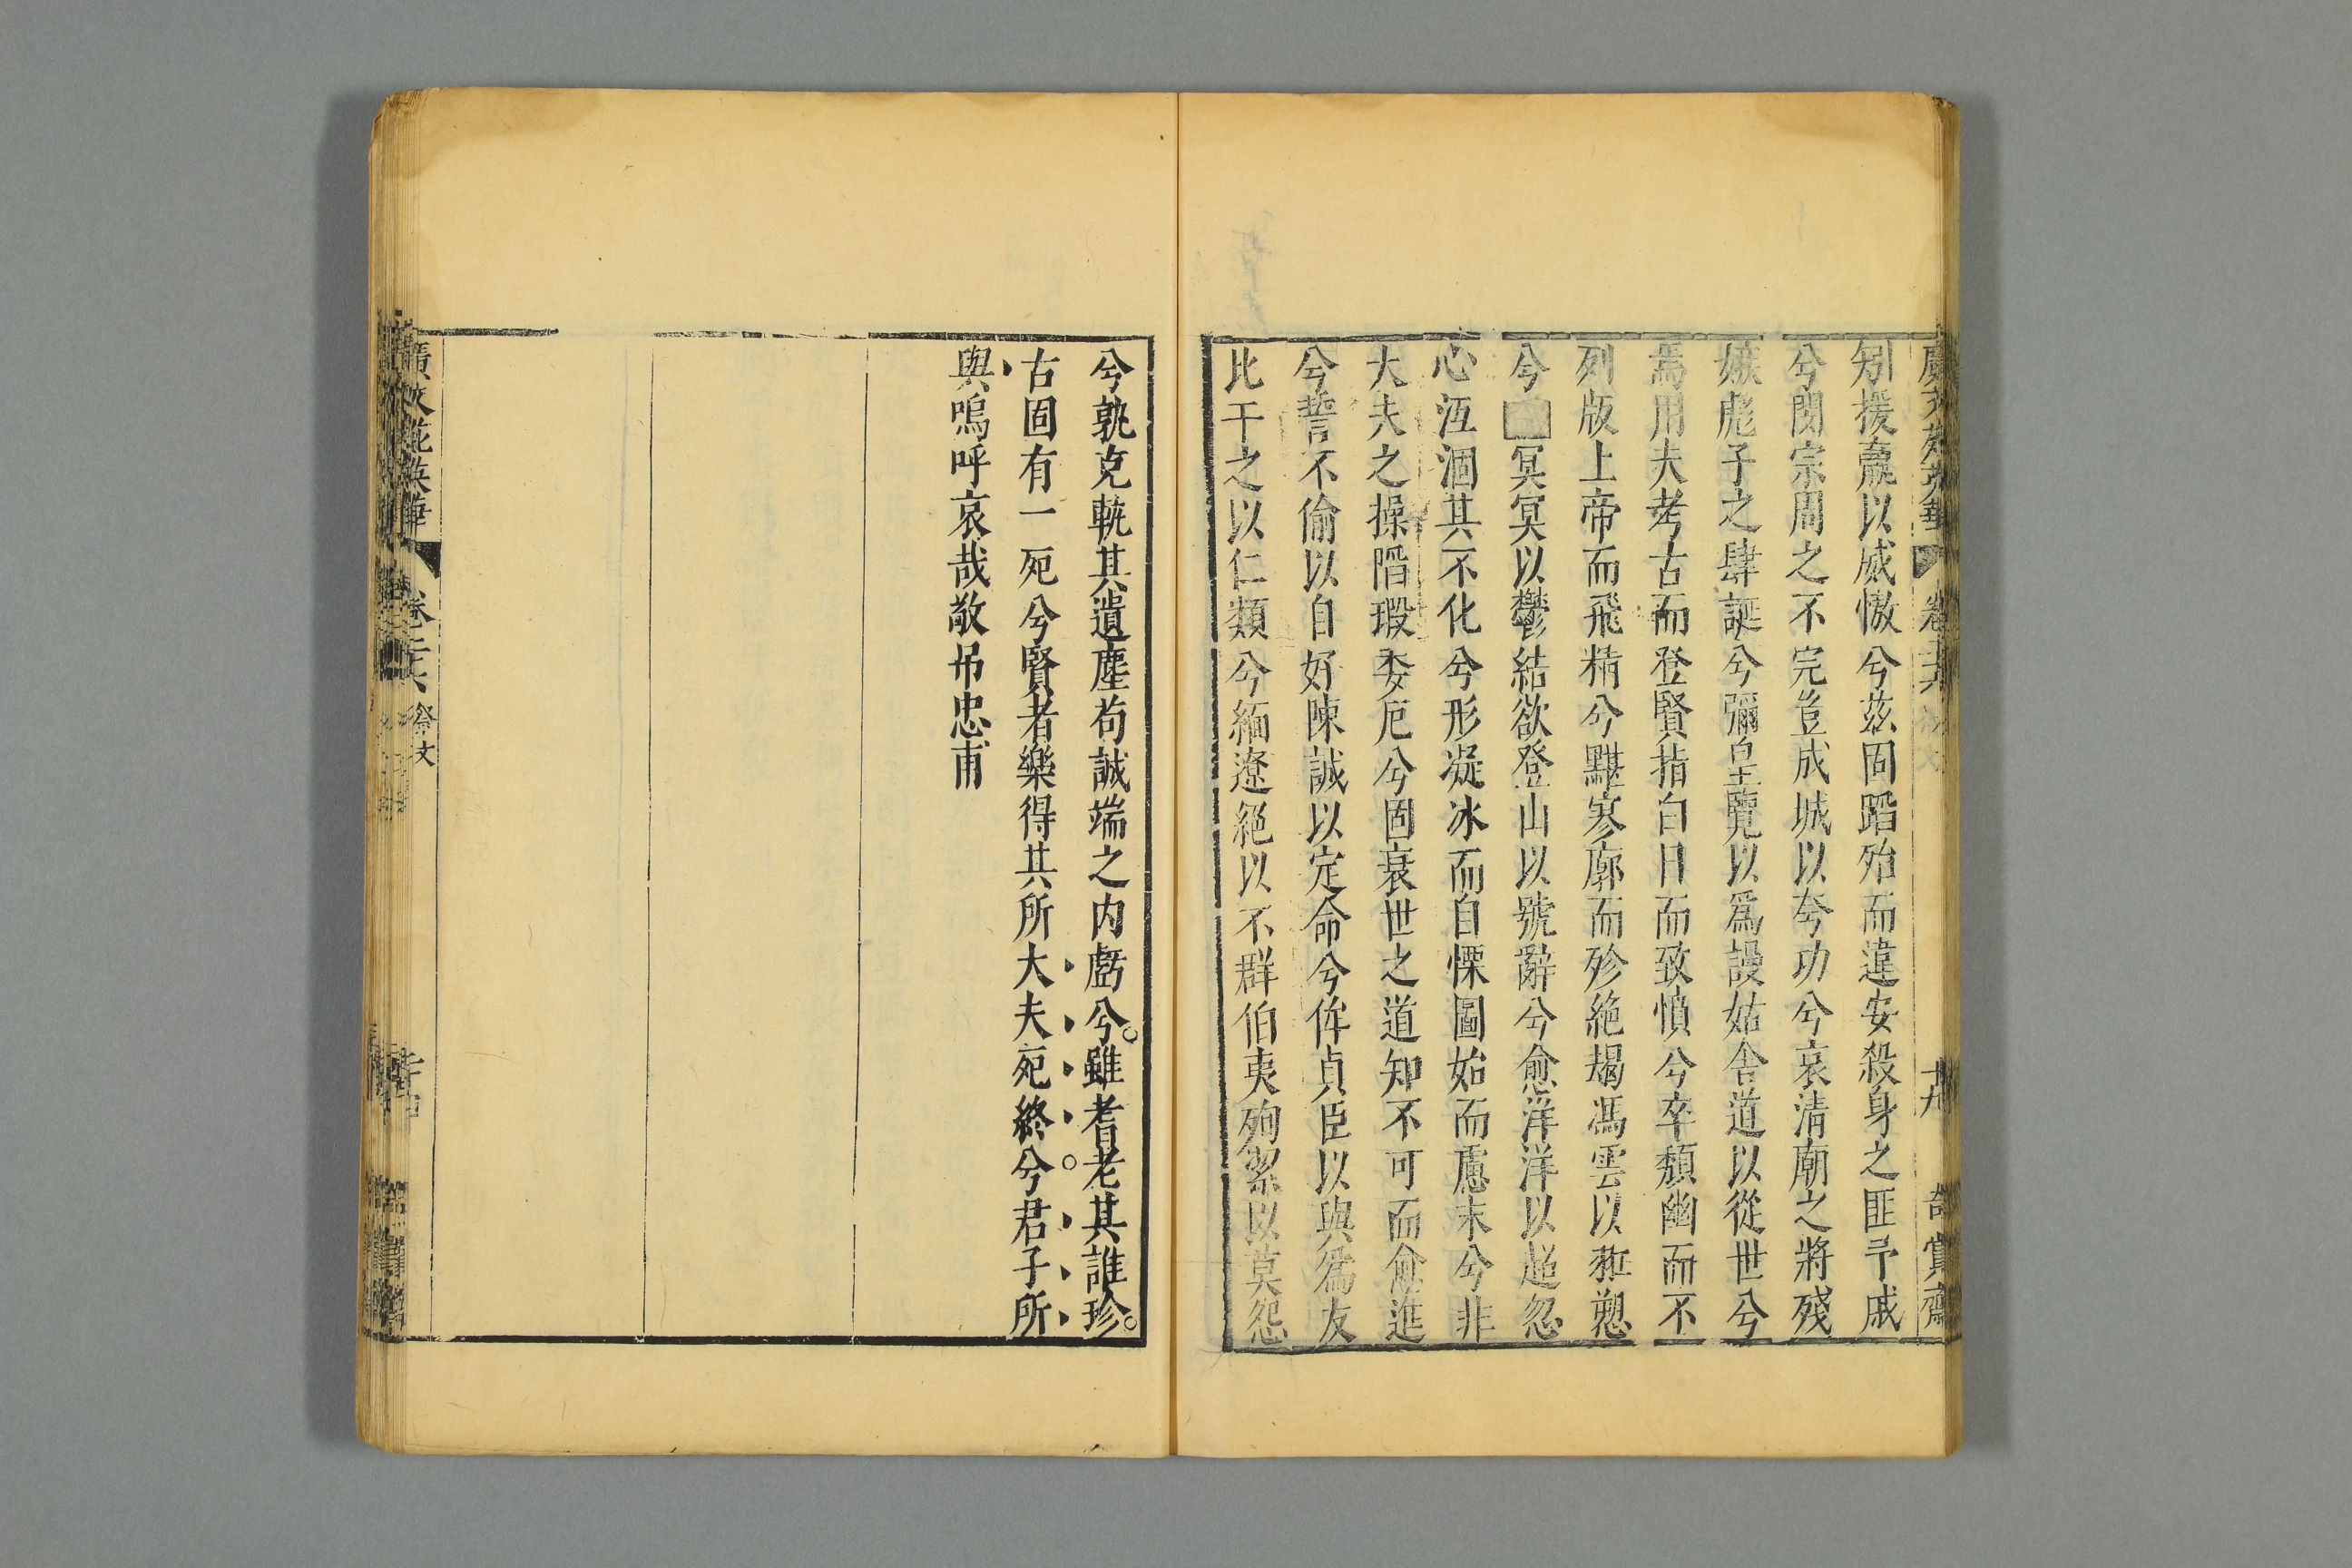 廣文苑英華 卷二十六 祭文 十九 奇賞齋
矧援羸以威慠兮茲固蹈殆而違安殺身之匪予戚
兮閔宗周之不完豈成城以夸功兮哀清廟之將殘
嫉彪子之肆誕兮彌皇覽以爲謾姑舍道以從世兮
焉用夫考古而登賢指白日而致憤兮卒頽幽而不
列版上帝而飛精兮黮寥廓而殄絶朅馮雲以羾愬
兮 冥冥以鬱結欲登山以號辭兮愈洋洋以超忽
心沍涸其不化兮形凝冰而自慄圖始而慮末兮非
大夫之操䧟瑕委厄兮固衰世之道知不可而愈進
兮誓不偷以自好陳誠以定命兮侔貞臣以與爲友
比干之以仁類兮緬遼絶以不群伯夷殉絜以莫怨
兮孰克軌其遺塵苟誠端之内虧兮雖耆老其誰珍
古固有一死兮賢者樂得其所大夫死終兮君子所
與嗚呼哀哉敬吊忠甫
廣文苑英華 卷二十六 祭文